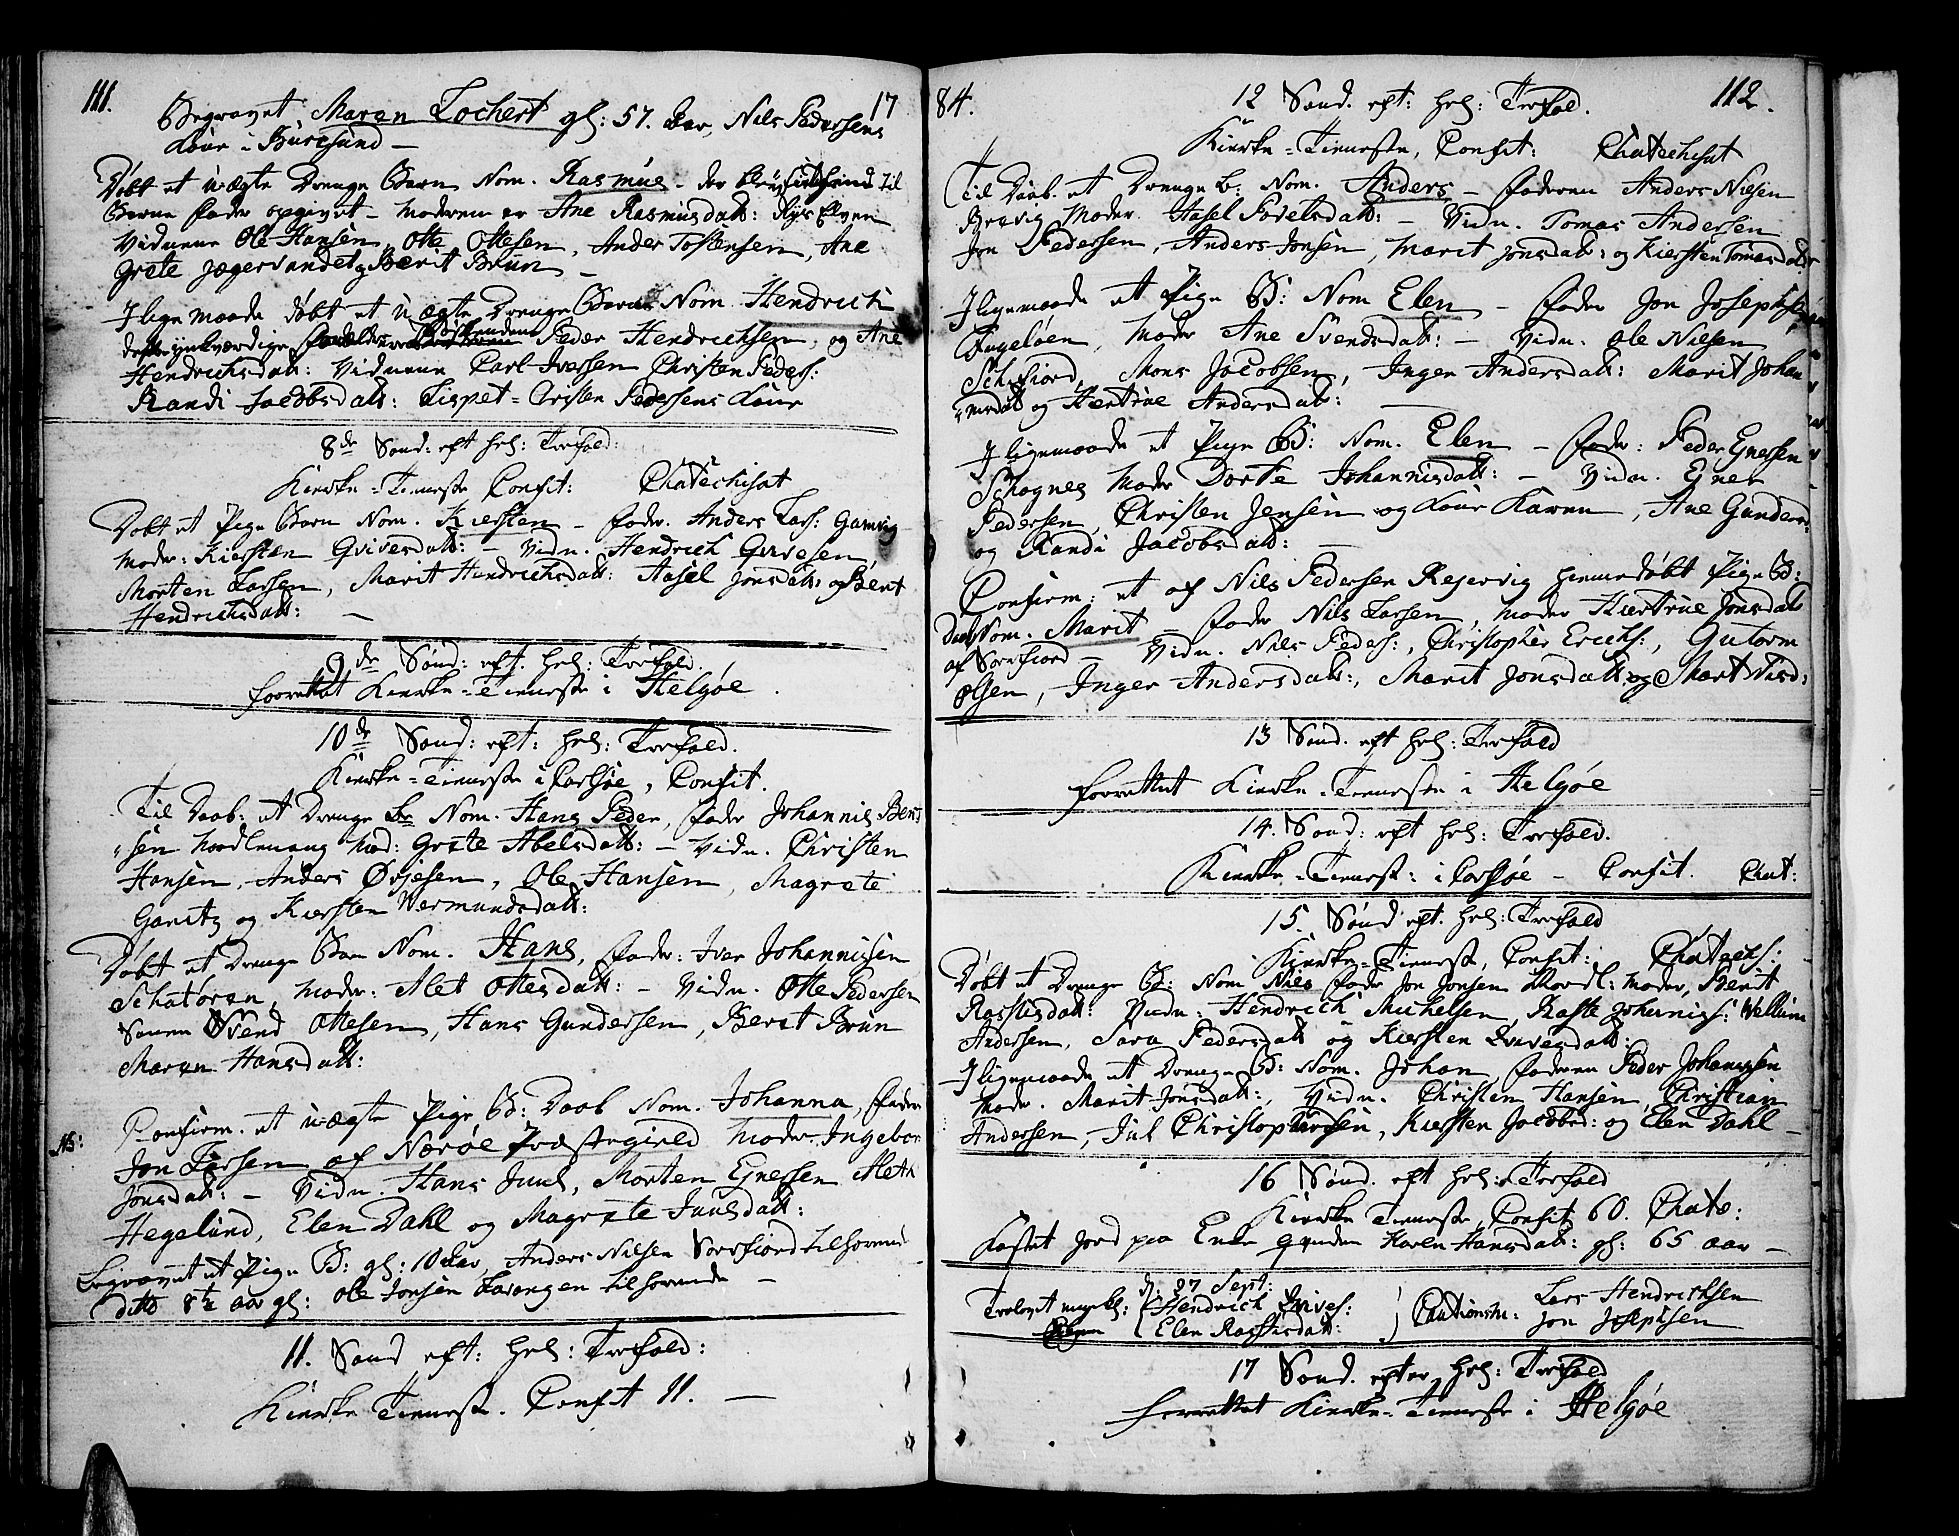 111. 17
Begravet Maren Lochert gl: 57. Aar, Nils Pedersens
Kone i Buresund —
Døbt et uægte Drenge Barn Nom. Rasmus - der til
Barne Fader opgivet - Moderen er Ane Rasmusdatt: Rÿs Elven
Vidnerne Ole Hansen, Otte Ottesen, Ander Tostensen, Ane
Grete Jægervandet og Berit Brun —
I lige maade døbt et uægte Drenge Barn Nom. Hendrich
Peder Hendrichsen, og Ane
Hendrichsdatt: Vidnerne Carl Iversen Christen Peders:
Randi Jacobsdatt: Lispet - Christen Pedersens Kone
8de Sønd: eft hel: Trefold:
Kircke-Tieneste Confit: Chatechisat
Døbt et Pige Barn Nom. Kiersten - Fader. Anders Lars: Gamvig
Moder: Kiersten Qvivesdatt: - Vidn. Hendrich Qvivesen,
Morten Larsen, Marit Hendrichsdatt: Aasel Jonsdatt: og Berit
Hendrichsdatt: —
9de Sønd: eft. hel: Trefold.
forrettet Kircke-Tieneste i Helgøe.
10de Sønd: eft: hel: Trefold.
Kircke-Tieneste i Carlsøe, Confit.
Til Daab: et Drenge Br Nom. Hans Peder, Fader Johannis Bent
"sen Nordlenang Mod: Grete Abelsdatt: - Vidn. Christen
Hansen, Anders Örjesen, Ole Hansen, Magrete
Garitz og Kiersten Wermundsdatt:
Døbt et Drenge Barn Nom. Hans, Fader: Iver Johannisen
Schatøren, Moder: Alet Ottesdatt: - Vidn. Otte Pedersen
Svend Ottesen, Hans Gundersen, Berit Brun
Maren Hansdatt:
NB: Confirm. et uægte Pige B: Daab Nom. Johanna, Fader
Jon Larsen af Nærøe Præstegield Moder Ingebor
Jonsdatt: - Vidn. Hans Juul, Morten Enessen Aleth
Hegelund, Elen Dahl og Magrete Juulsdatt:
Begravet et Pige B: gl: 10 Aar, Anders Nilsen Sørfiord tilhørende
ditto 8½ aar gl: Ole Jonsen Lavangen tilhørende —
11. Sønd eft: hel: Trefold:
Kircke Tieneste. Confit 11. —
84. 112.
12 Sønd. eft: hel: Trefol.
Kircke-Tieneste, Confit: Chatechisat
Til Daab. et Drenge B: Nom. Anders - Faderen Anders Nilsen
Brevig Moder. Aasel Povelsdatt: - Vidn. Tomas Andersen
Jon Pedersen, Anders Jonsen, Marit Jonsdatt: og Kiersten Tomasdatt:
I ligemaade et Pige B: Nom Elen - Fader Jon Josephsen
Fugeløen, Moder Ane Svendsdatt: - Vidn. Ole Nilsen
Schifiord, Mons Jacobsen, Inger Andersdatt: Marit Johan
"nisdatt og Kiertrue Andersdatt:
I ligemaade et Pige B: Nom. Elen - Fader: Peder Enessen
Schognes Moder Dorte Johannisdatt: - Vidn. Enes
Pedersen, Christen Jensen og Kone Karen, Ane Gunders:
og Randi Jacobsdatt: —
Confirm: et af Nils Pedersen Rejervig hiemedøbt Pige B:
Daab Nom. Marit - Fader Nils Larsen, Moder Kiertrue Jonsdatt
af Sørfiord Vidn. Nils Peders:, Christopher Erichs:, Gutorm
Olsen, Inger Andersdatt:, Marit Jonsdatt: og Marit Nilsd:
13 Sønd. eft hel: Trefold
forrettet Kircke-Tieneste i Helgøe
14. Sønd: eft hel: Trefold.
Kircke-Tienest: i Carlsøe - Confit. Chat:
15. Sønd eft. hel: Trefold
Kircke-Tieneste, Confit: Chatechs:
Døbt et Drenge B: Nom Nils Fader Jon Jonsen Nordl: Moder, Berit
Rastisdatt: Vidn: Hendrich Michelsen, Raste Johannis: Wellum
Andersen, Sara Pedersdatt og Kiersten Qvivesdatt:
I ligemaade et Drenge B: Nom. Johan Faderen Peder Johannisen
Moder. Marit Jonsdatt:, Vidn. Christen Hansen, Christian
Andersen, Jul Christophersen, Kiersten Jacobsd: og Elen Dahl —
16 Sønd. eft hel: Trefold
Kircke Tieneste, Confit 60. Chate:
Kastet Jord paa Enke Karen Hansdatt: gl: 65 aar —
d: 27 Sept:
Trolovet Hendrich Qvives: Cautionsm: Lars Hendrichsen
Elen Rastisdatt: Jon Josephsen
17 Sønd. efter hel: Trefold
forrettet Kircke-Tieneste i Helgøe